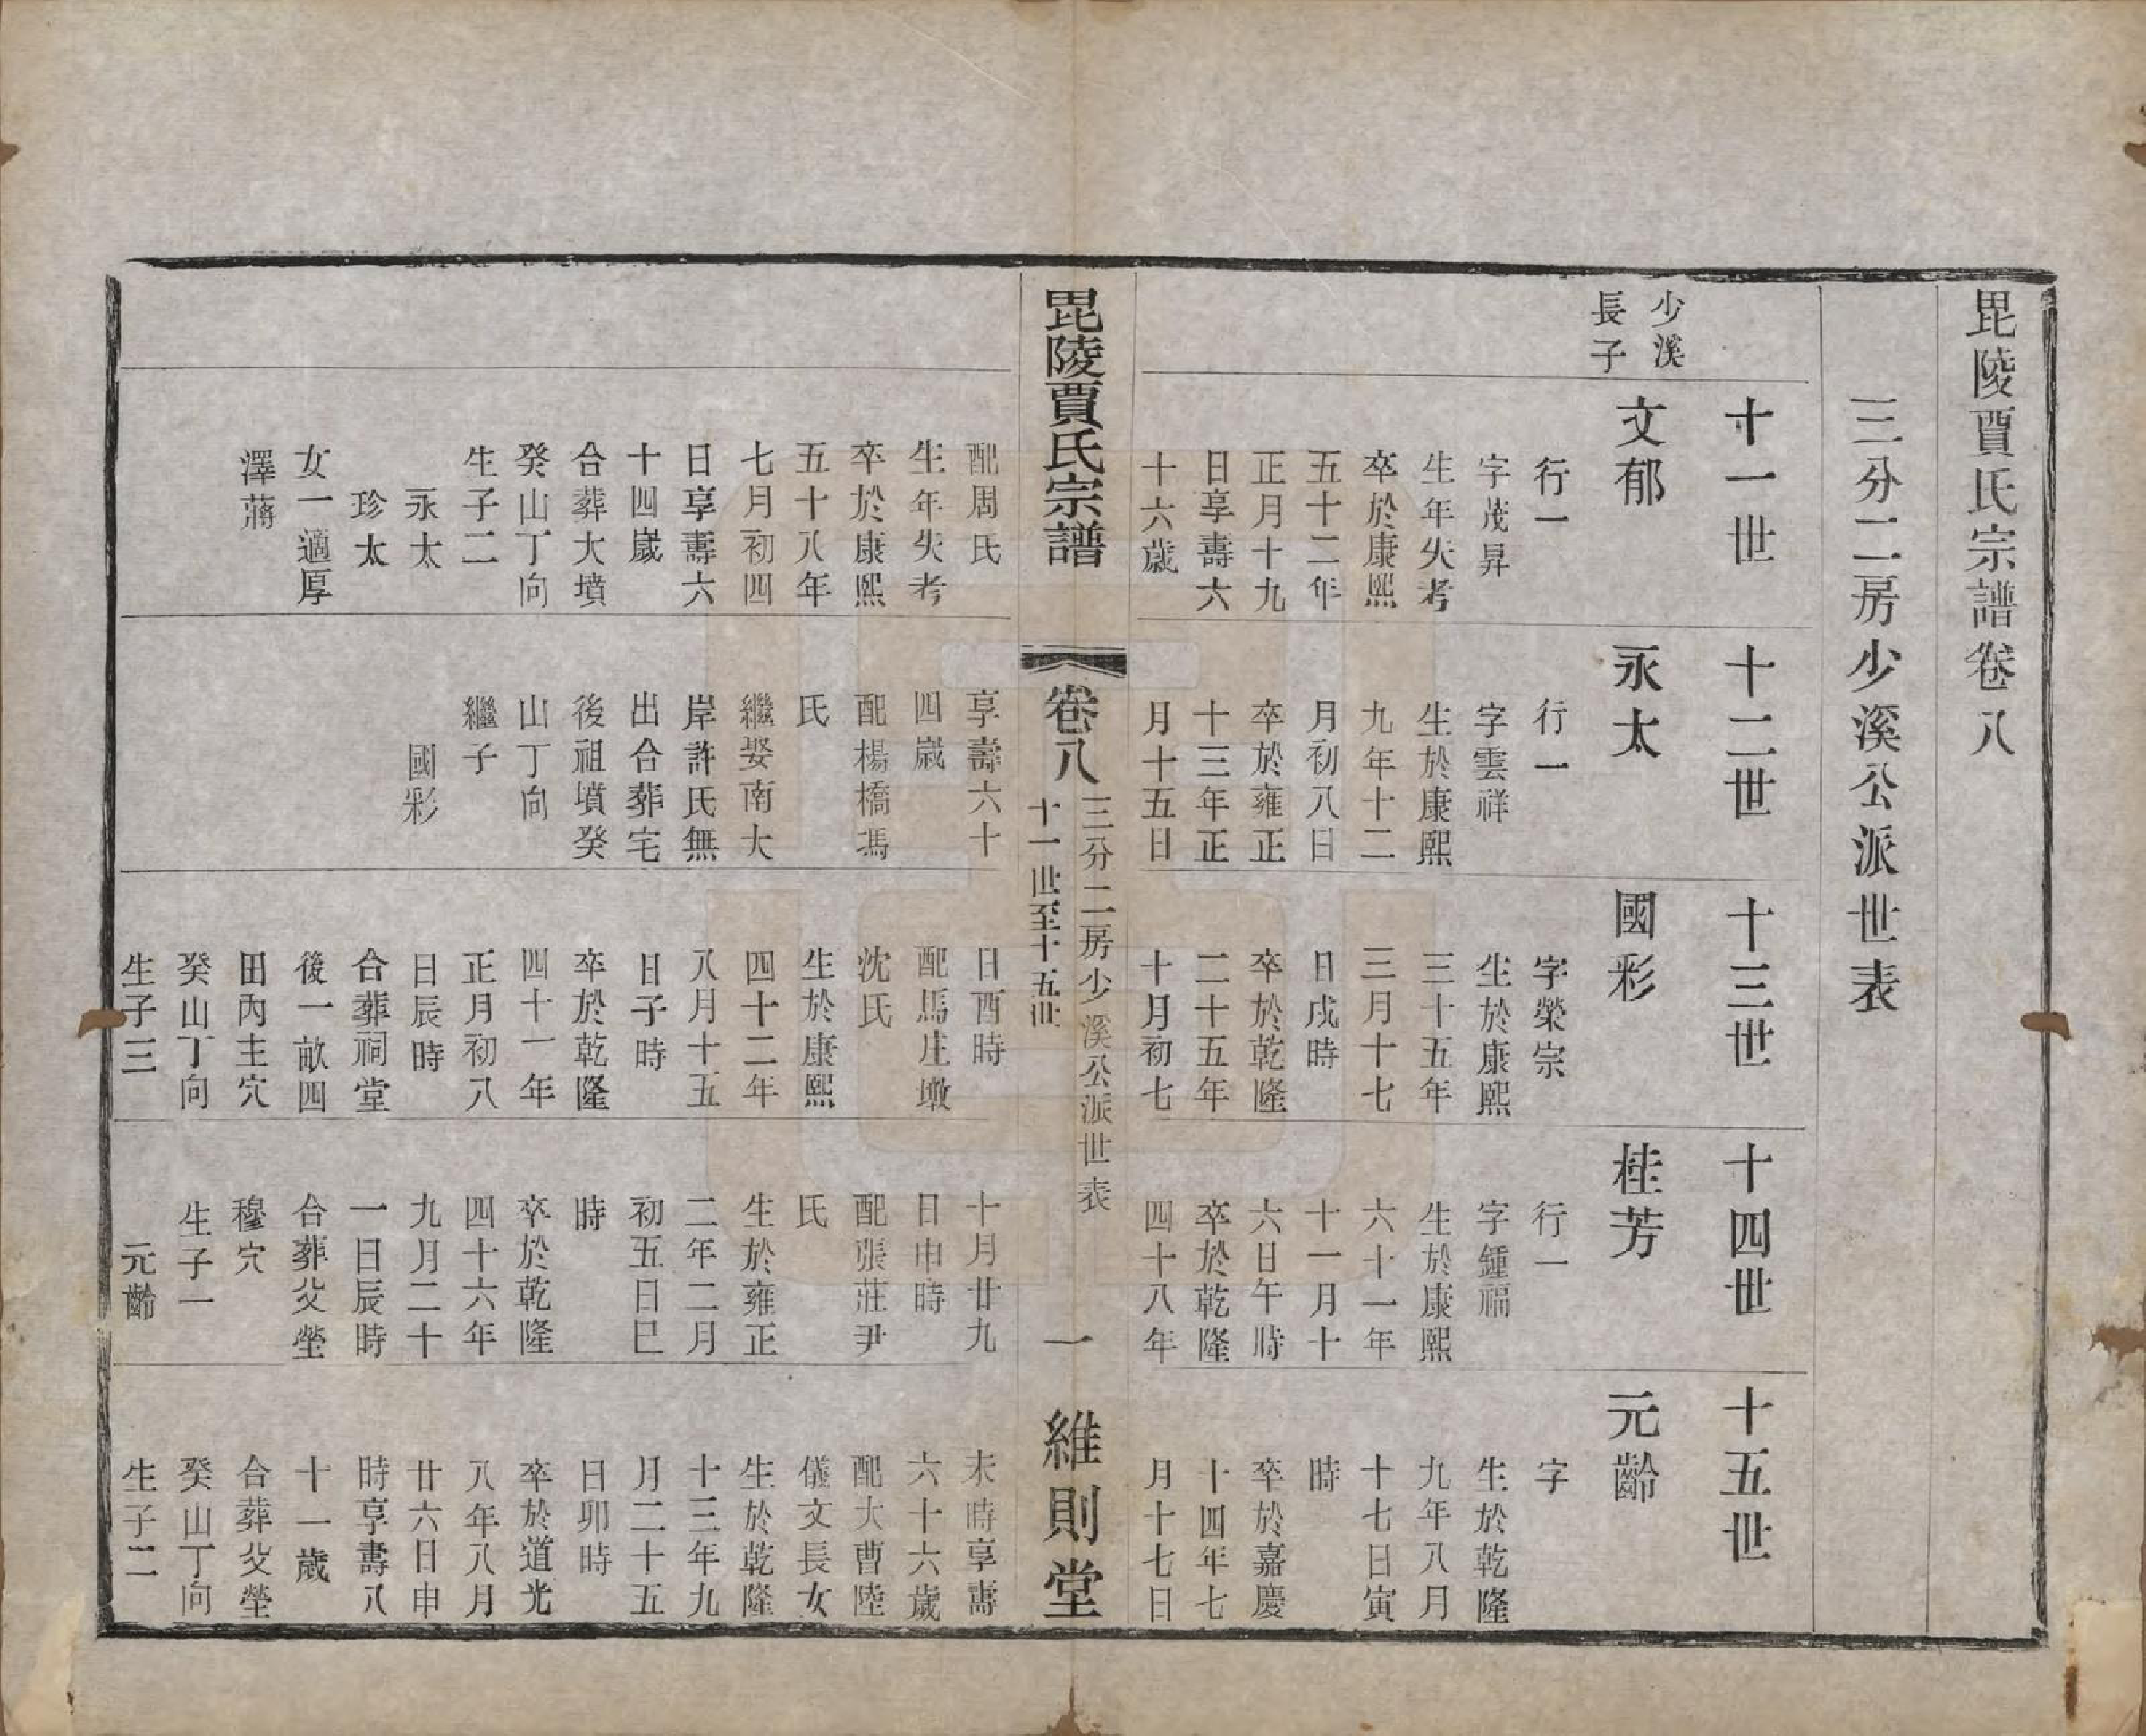 毘陵賈氏宗譜卷八
三分二房少溪公派世表
十一世
少溪
長子
文郁
行一
字茂昇
生年失考
卒於康熙
五十二年
正月十九
日享壽六
十六歲
配周氏
生年失考
卒於康熙
五十八年
七月初四
日享壽六
十四歲
合葬大墳
癸山丁向
生子二
永太
珍太
女一適厚
澤蔣
十二世
永太
行一
字雲祥
生於康熙
九年十二
月初八日
卒於雍正
十三年正
月十五日
享壽六十
四歲
配楊橋馮
氏
繼娶南大
岸許氏無
出合葬宅
後祖墳癸
山丁向
繼子
國彩
十三世
國彩
字榮宗
生於康熙
三十五年
三月十七
日戌時
卒於乾隆
二十五年
十月初七
日酉時
配馬庄墩
沈氏
生於康熙
四十二年
八月十五
日子時
卒於乾隆
四十一年
正月初八
日辰時
合葬祠堂
後一畝四
田內主穴
癸山丁向
生子三
十四世
桂芳
行一
字鍾福
生於康熙
六十一年
十一月十
六日午時
卒於乾隆
四十八年
十月廿九
日申時
配張莊尹
氏
生於雍正
二年二月
初五日巳
時
卒於乾隆
四十六年
九月二十
一日辰時
合葬父塋
穆穴
生子一
元齡
十五世
元齡
字
生於乾隆
九年八月
十七日寅
時
卒於嘉慶
十四年七
月十七日
未時享壽
六十六歲
配大曹陸
儀文長女
生於乾隆
十三年九
月二十五
日卯時
卒於道光
八年八月
廿六日申
時享壽八
十一歲
合葬父塋
癸山丁向
生子二
毘陵賈氏宗譜
卷八
三分二房少溪公派世表
十一世至十五世
一
維則堂